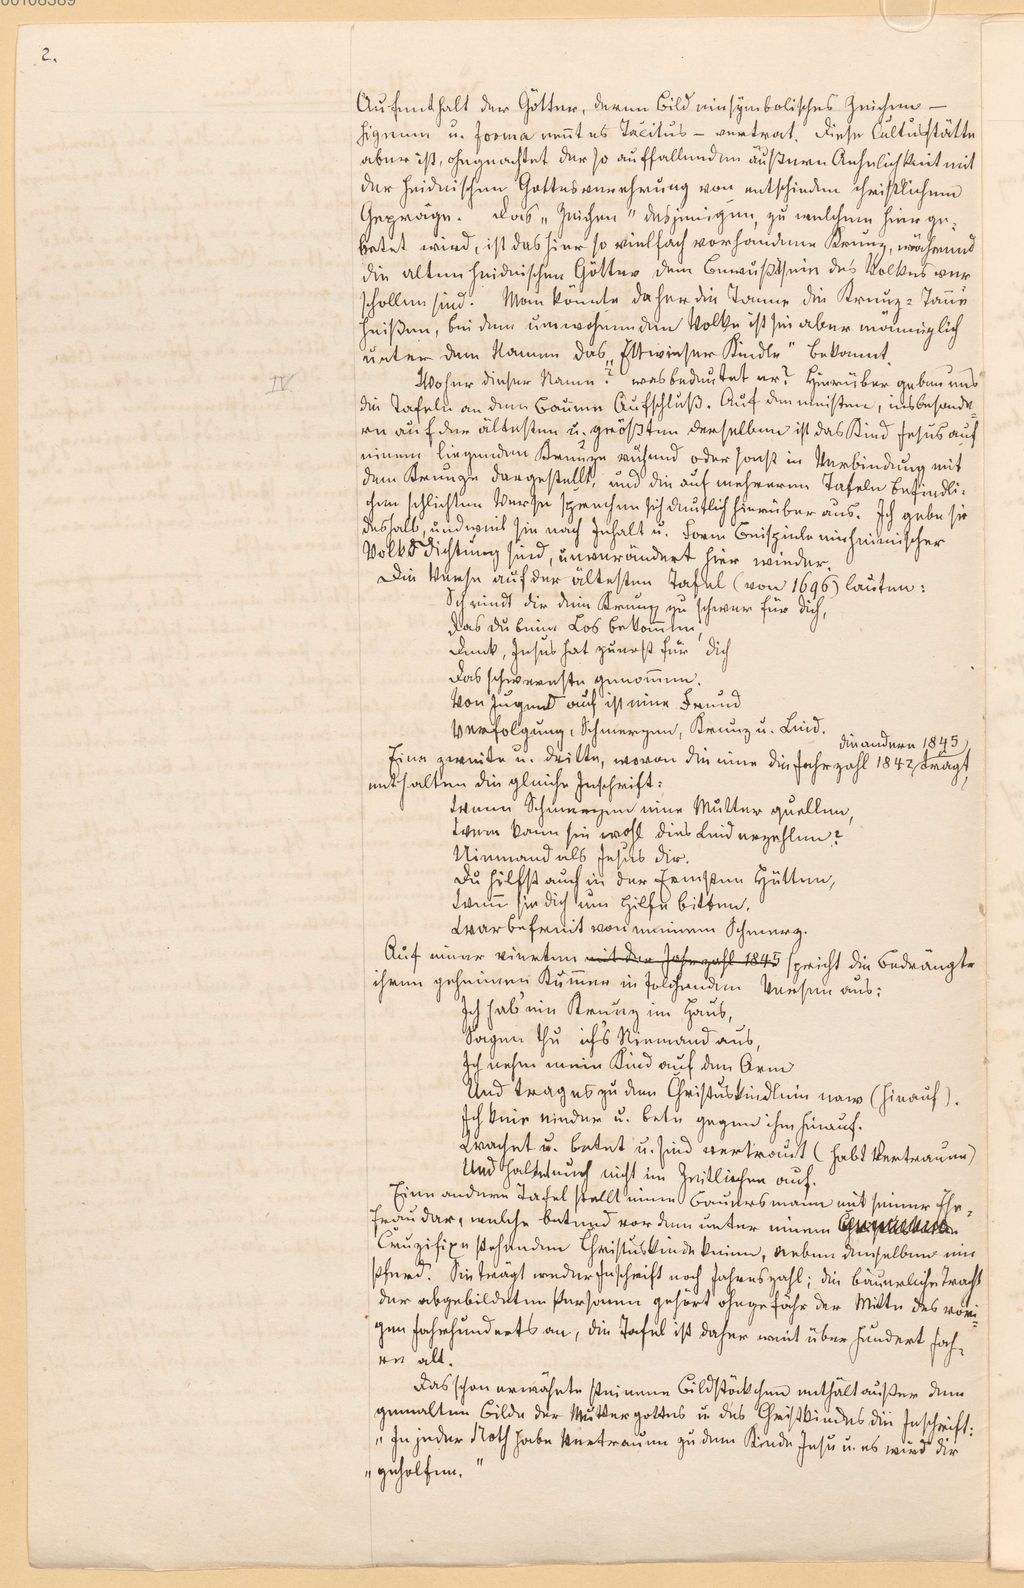 00108389
2.
Aufenthalt der Götter, deren Bild ein symbolisches Zeichen —
signum u. forma nennt es Tacitus — vertrat. Diese Cultusstätte
aber ist, ohngeachtet der so auffallenden äußern Aehnlichkeit mit
der heidnischen Gottesverehrung von entschieden christlichem
Gepräge. Das „Zeichen" desjenigen, zu welchem hier ge-
betet wird, ist das hier so vielfach vorhandene Kreuz, während
die alten heidnischen Götter dem Bewußtsein des Volkes ver
schollen sind. Man könnte daher die Tanne die Kreuz-Tanne
heißen, bei dem umwohnenden Volke ist sie aber männiglich
unter dem Namen das „Ettwieser Kindle" bekannt.
IV
Woher dieser Name? was bedeutet er? Hierüber geben uns
die Tafeln an dem Baume Aufschluß. Auf den meisten, insbesonde-
re auf der ältesten u. größten derselben ist das Kind Jesus auf
einem liegenden Kreuze ruhend oder sonst in Verbindung mit
dem Kreuze dargestellt, und die auf mehreren Tafeln befindli-
chen schlichten Verse sprechen sich deutlich hierüber aus. Ich gebe sie
deshalb, und weil sie nach Inhalt u. Form Beispiele einheimischer
Volksdichtung sind, unverändert hier wieder.
Die Verse auf der ältesten Tafel (von 1696) lauten:
Scheindt dir dein Kreuz zu schwer für dich,
Das du beim Los bekommen,
Denk, Jesus hat zuerst für dich
Das schwerste genommen.
Von Jugend auf ist eine Freund
Verfolgung, Schmerzen, Kreuz u. Leid.
die andere 1845
Eine zweite u. dritte, wovon die eine die Jahrzahl 1842, trägt,
enthalten die gleiche Inschrift:
Wenn Schmerzen eine Mutter quellen,
Wem kann sie wohl dies Leid erzehlen?
Niemand als Jesus dir.
Du hilfst auch in der Hütten,
Wenn sie dich um Hilfe bitten.
War befreit von meinem Schmerz.
Auf einer vierten mit der Jahrzahl 1845 spricht die Bedrängte
ihren geheimen Kummer in folgenden Versen aus:
Ich hab' ein Kreuz im Haus,
Sagen thu ich's Niemand aus,
Ich nehm mein Kind auf den Arm
Und trag es zu dem Christuskindlein naw (hinauf).
Ich knie nieder u. bete gegen ihm hinauf.
Wachet u. betet u. sind vertraut (habt Vertrauen)
Und haltet euch nicht im Zeitlichen auf.
Eine andere Tafel stellt einen Bauersmann mit seiner Ehe-
frau dar, welche betend vor dem unter einem
Cruzifixe stehenden Christuskinde knien, neben denselben ein
Pferd. Sie trägt weder Inschrift noch Jahreszahl; die bäuerliche Tracht
der abgebildeten Personen gehört ohngefähr der Mitte des vori-
gen Jahrhunderts an, die Tafel ist daher weit über hundert Jah-
re alt.
Das schon erwähnte steinerne Bildstöckchen enthält außer dem
gemalten Bilde der Muttergottes u. des Christkindes die Inschrift:
„In jeder Noth habe Vertrauen zu dem Kinde Jesu u. es wird dir
„geholfen."